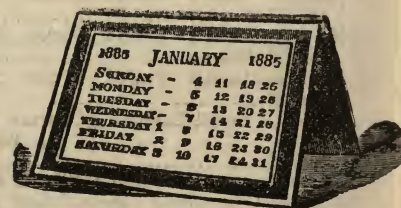 1885 JANUARY 1885
SUNDAY - 4 11 18 25
MONDAY - 5 12 19 26
TUESDAY - 6 13 20 27
WEDNESDAY - 7 14 21 28
THURSDAY 1 8 15 22 29
FRIDAY 2 9 16 23 30
SATURDAY 3 10 17 24 31